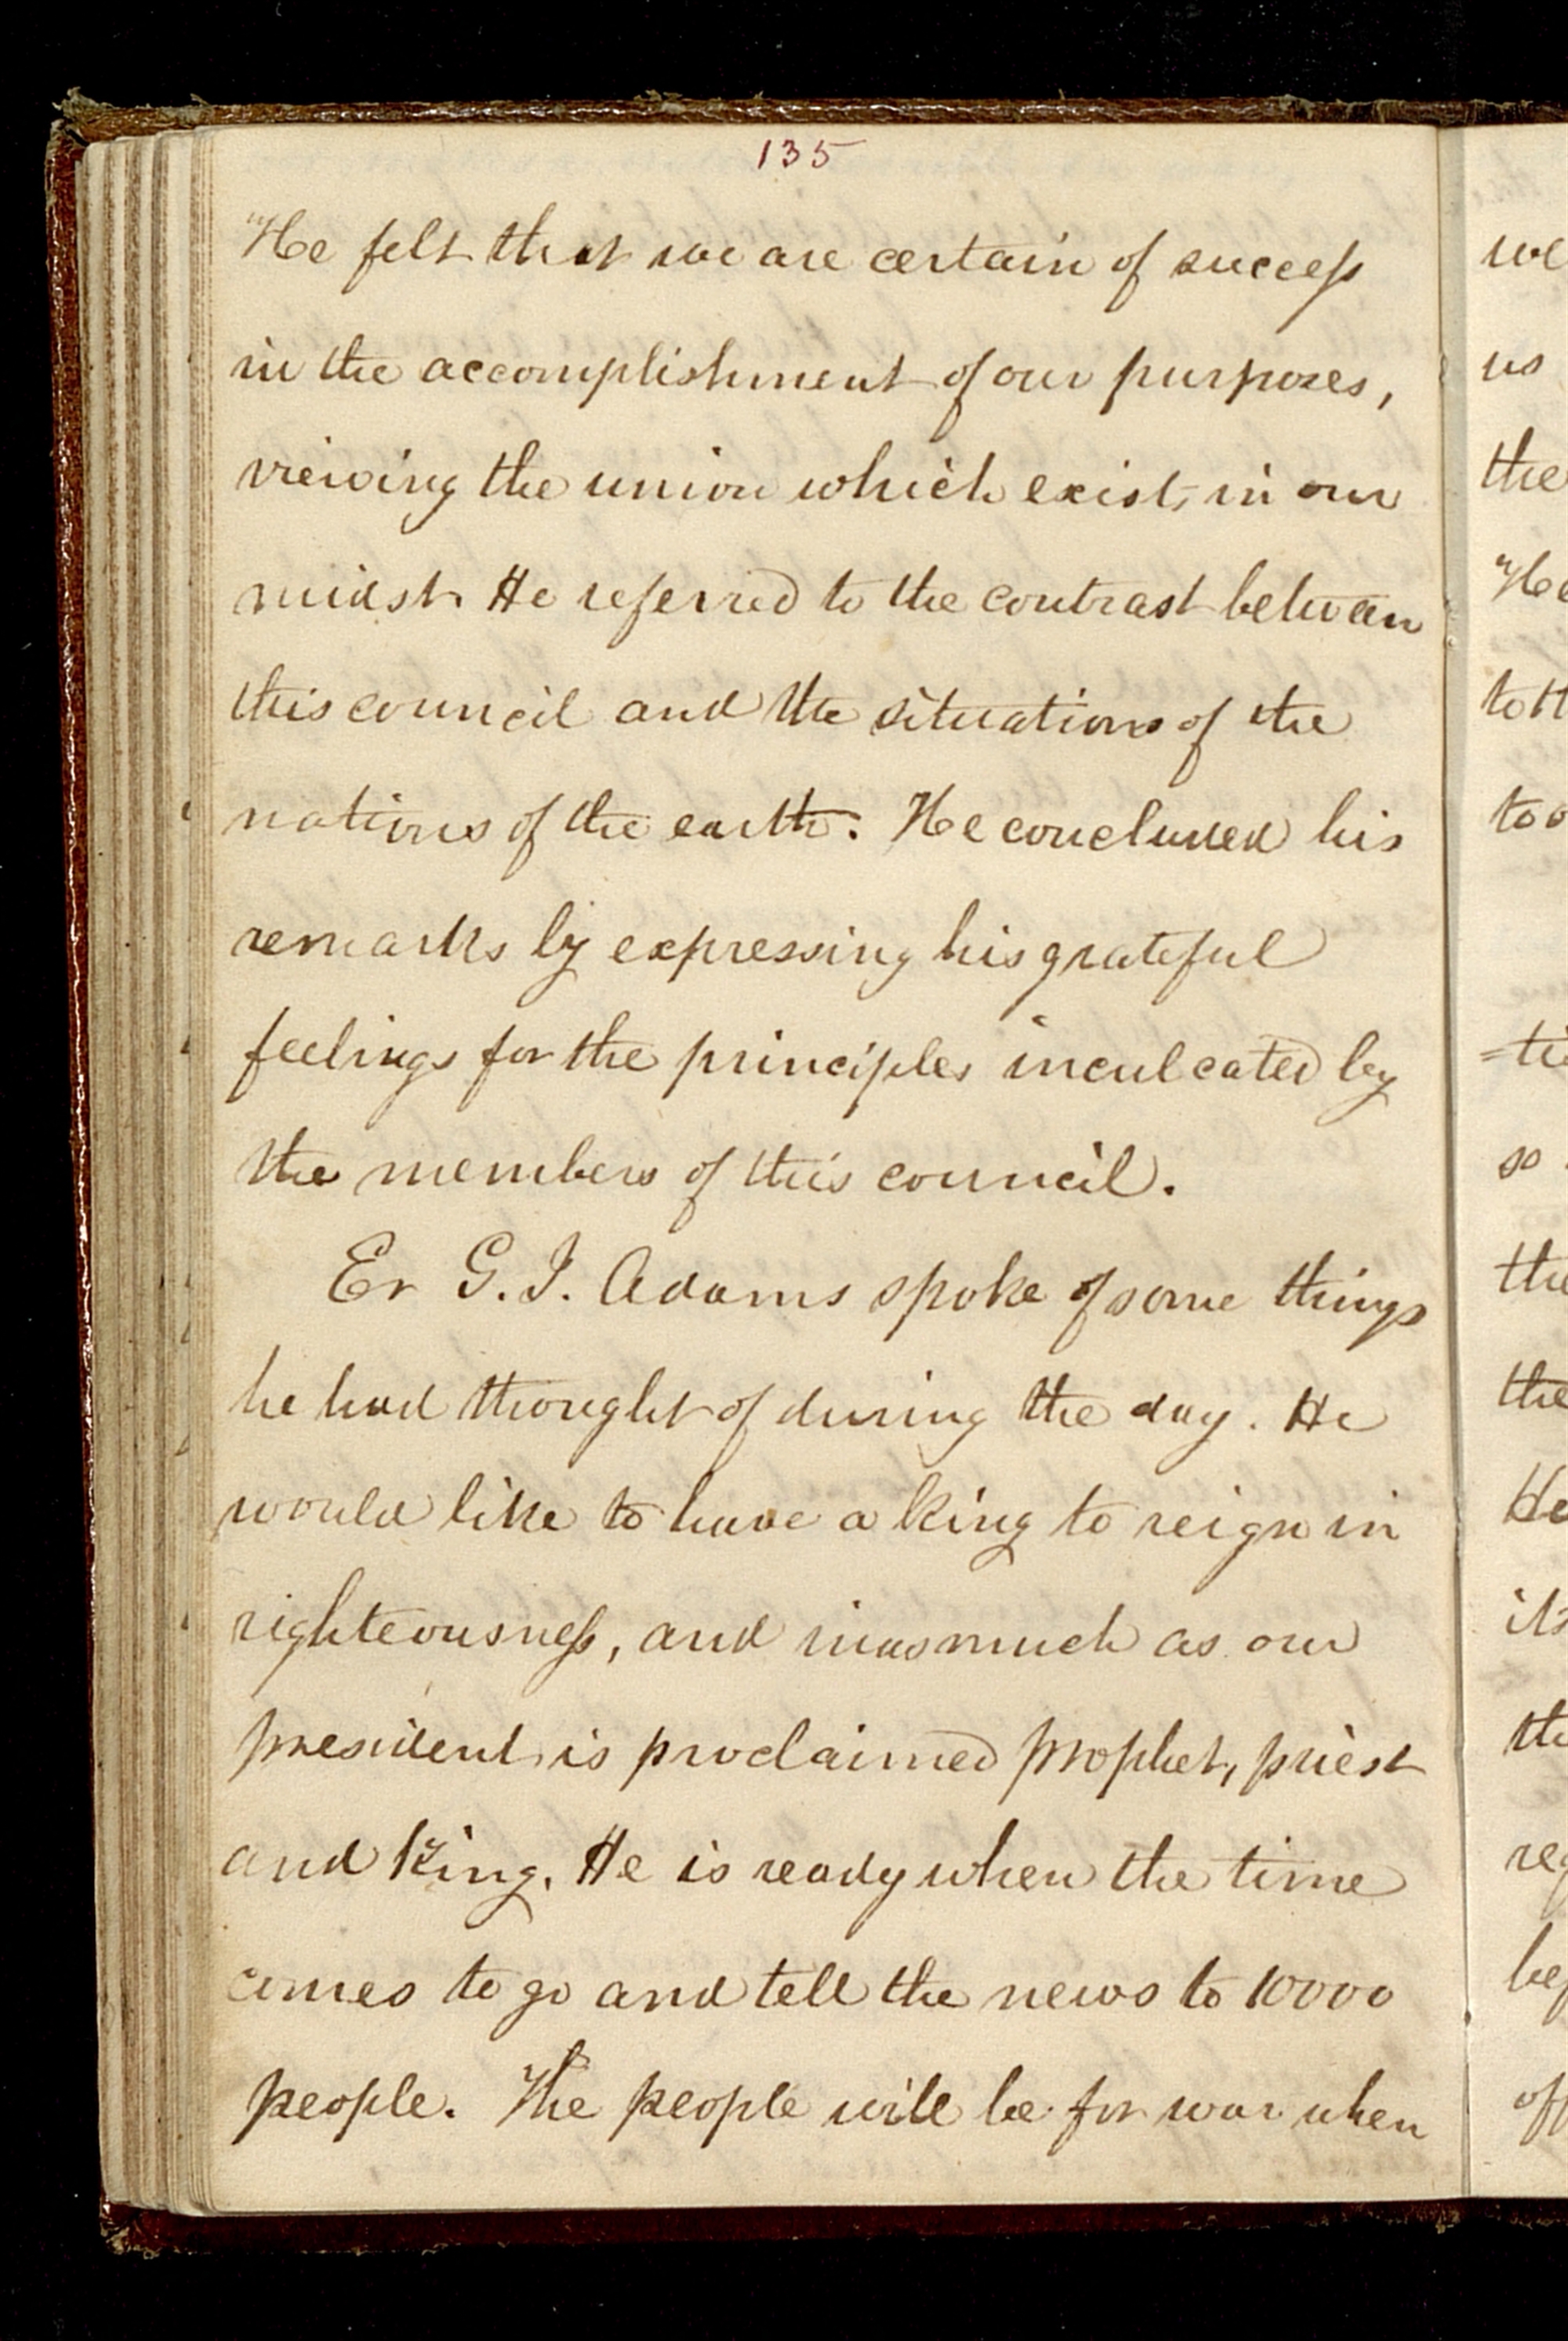 135
He felt that we are certain of success
in the accomplishment of our purposes,
viewing the union which exists in our
midst. He referred to the contrast between
this council and the situations of the
nations of the earth. He concluded his
remarks by expressing his grateful
feelings for the principles inculcated by
the members of this council.
Er G. J. Adams spoke of some things
he had thought of during the day. He
would like to have a king to reign in
righteousness, and inasmuch as our
president is proclaimed prophet, priest
and king. He is ready when the time
comes to go and tell the news to 10000
people. The people will be for war when
we
us
the
He
to th
to o
=ti
so
the
the
He
its
the
reg
bef
off